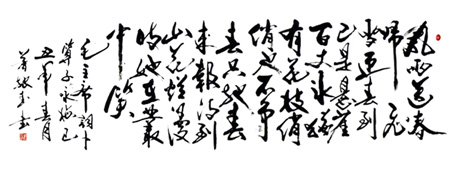 風雨送春
歸飛
雪迎春到
已是悬崖
百丈冰猶
有花枝俏
俏也不争
春只把春
来報待到
山花爛漫
時她在叢
中笑
毛主席詞卜
算子咏梅己
丑年春月
書